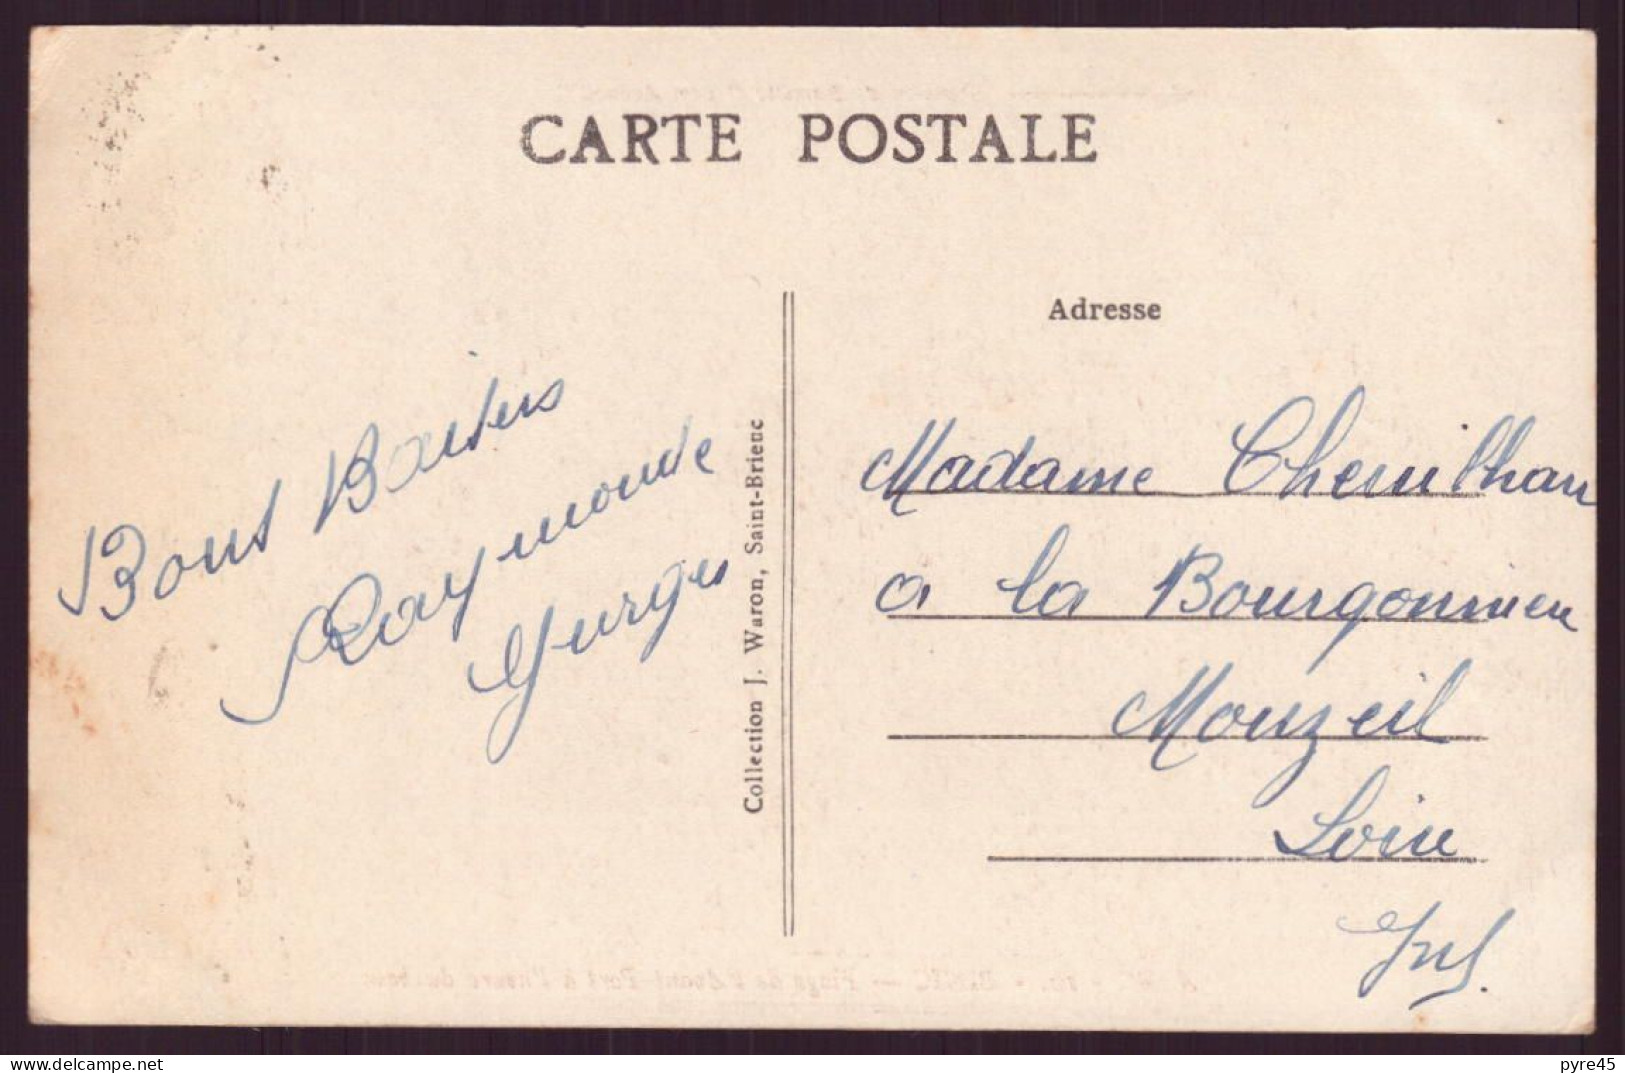 CARTE POSTALE
Bons Baisers
Raymonde
Collection J. Waron, Saint-Brieuc
Adresse
Madame
a la Bourgonnière
Mouzeil
Loire
Inf.
pyre45